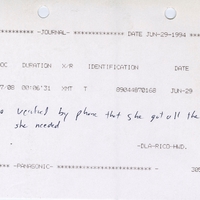 ******** -JOURNAL- ******************** DATE JUN-29-1994 *****
OC DURATION X/R IDENTIFICATION DATE
07/08 00:06'31 XMT T 89044870168 JUN-29
verified by phone that she got all the
she needed
-DLA-RICO-HWD.
-PANASONIC- ********************